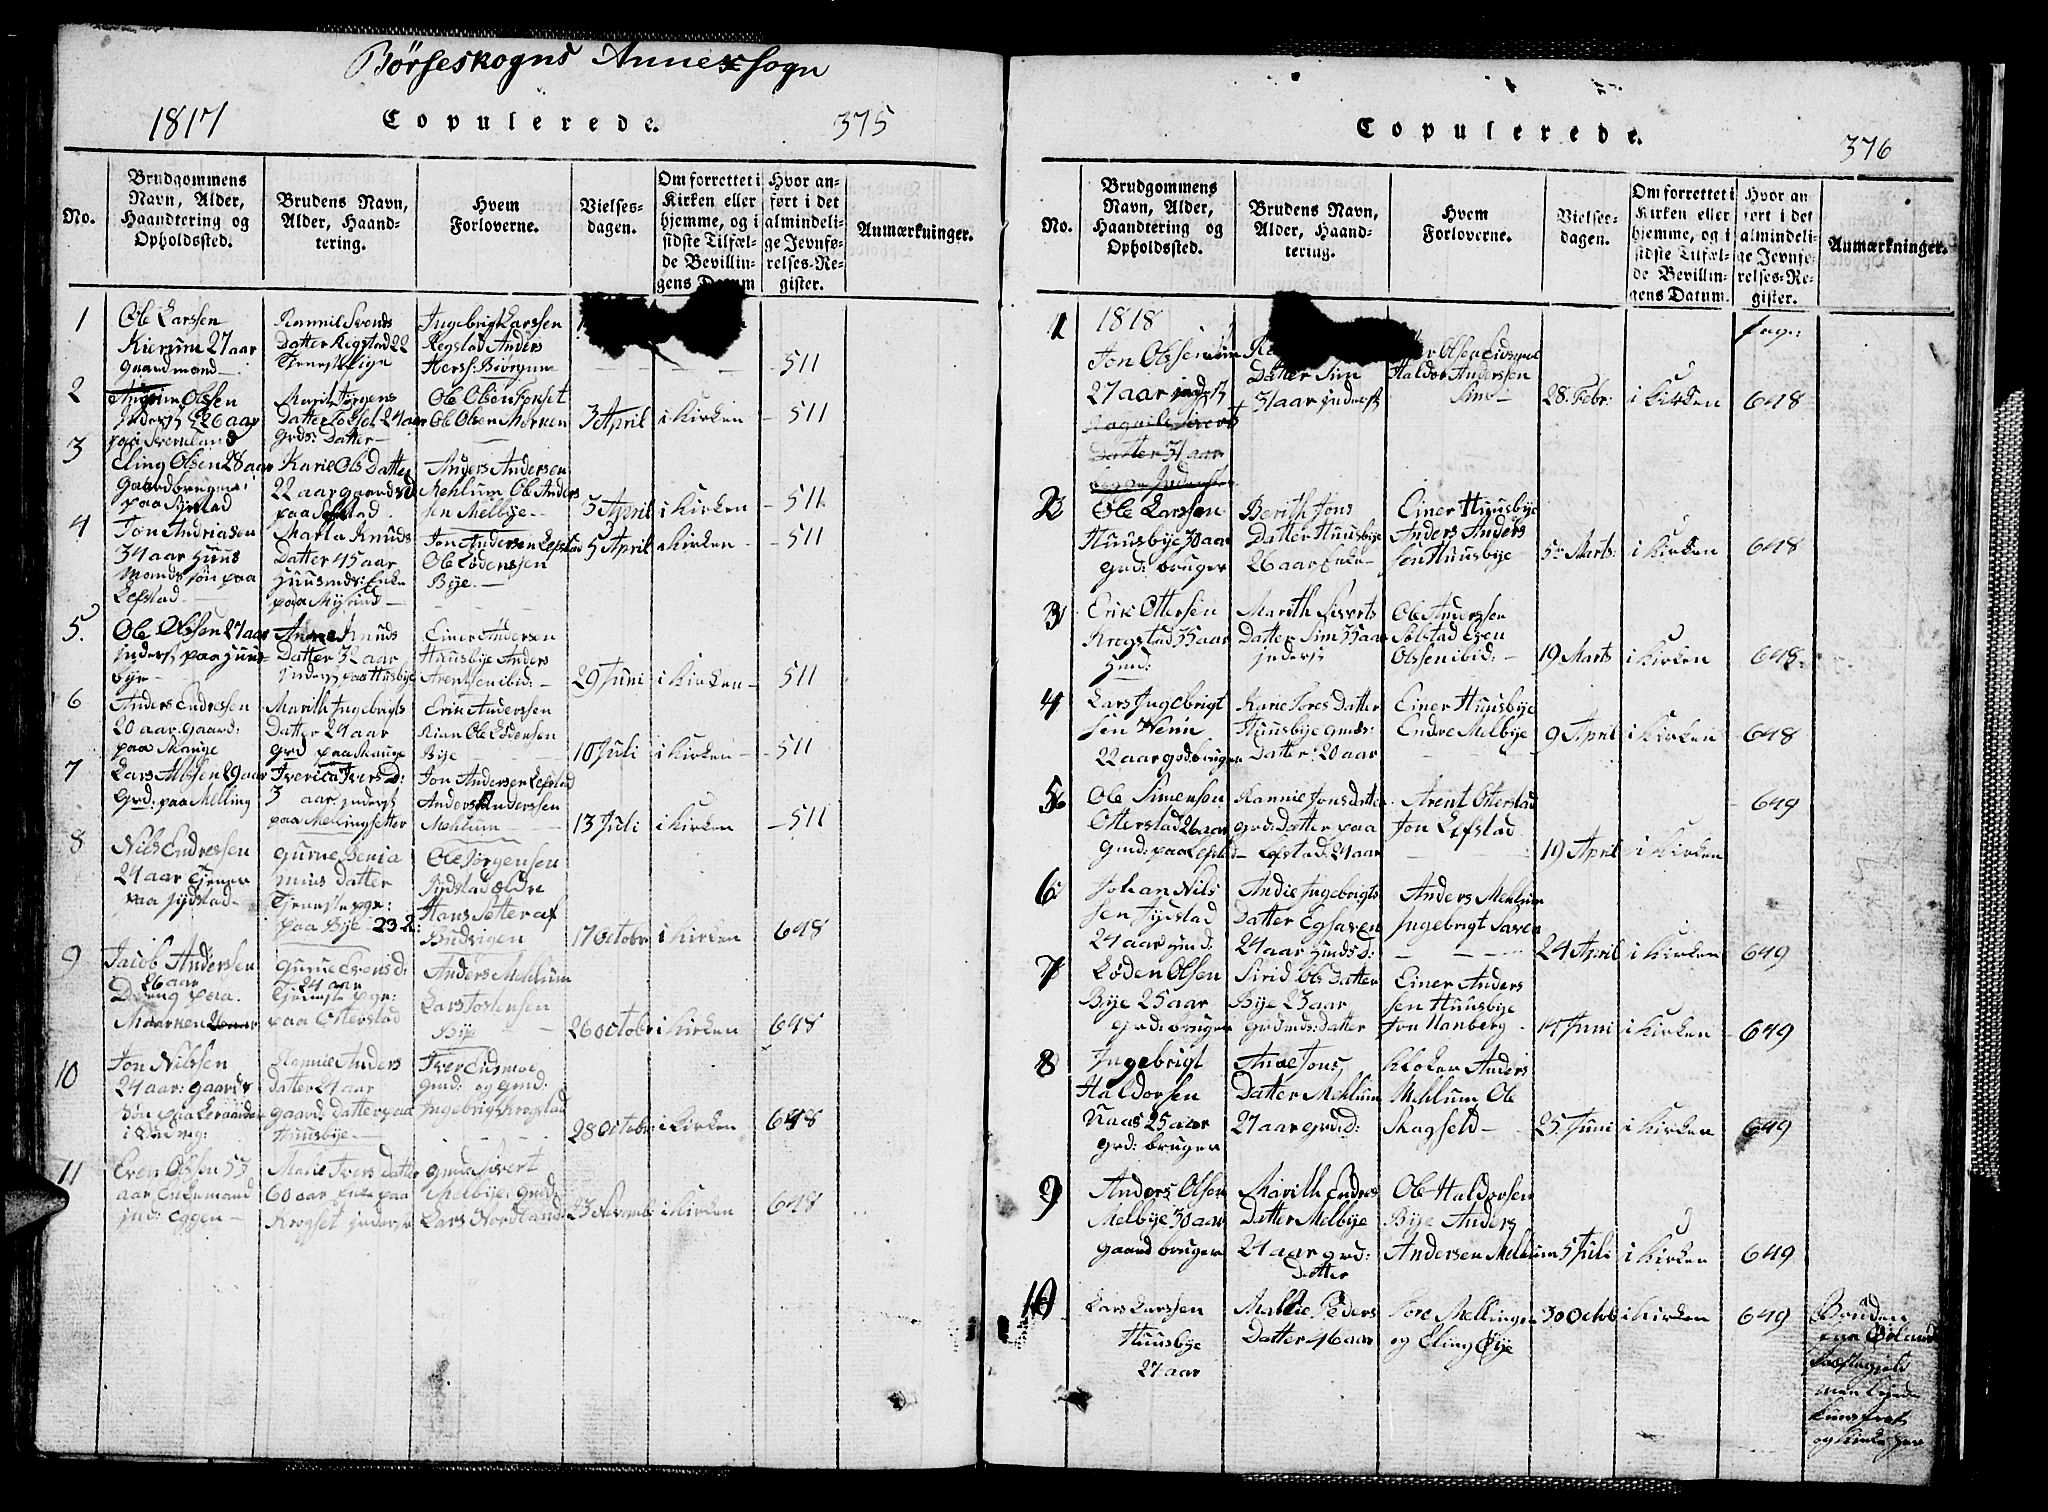 Børseskogns Annexsogn
1817
Copulerede.
375
No.
Brudgommens
Navn, Alder,
Haandtering og
Opholdssted.
Brudens Navn,
Alder, Haand-
tering.
Hvem
Forloverne.
Vielses-
dagen.
Om forrettet i
Kirken eller
hjemme, og i
sidste Tilfæl-
de Bevillin-
gens Datum
Hvor an-
ført i det
almindeli-
ge Jevnfø-
relses-Re-
gister.
Anmærkninger.
1
Ole Larssen
Kierum 27 aar
gaardmand
Rannie Svends
Datter Rigstad 22
Tjeneste Pige
Ingebrigt Larssen
Regstad Anders
Herss: Børgum
511
2
Olsen
Inders 26 aar
paa Svernland
Marit Jørgens
Datter 24 aar
grds: Datter
Ole Olsen
Ole Olsen Morken
3 April
i Kirken
511
3
Eling Olsen 28 aar
gaardbruger
paa
Karie Ols Datter
22 aar gaards d
paa
Anders Andersen
Mehlum Ole Anders
sen Melbye
3 April
i Kirken
511
4
Jon Andriasen
34 aar Huus
mands søn paa
Lefstad
Marta Knuds
Datter 45 aar
Huusmds: Enke
paa Myrind
Jon Andersen Lefstad
Ole Lodenssen
Bye
5 April
i Kirken
511
5.
Ole Olssen 27 aar
Inders paa Huus
bye
Anne Knuds
Datter 32 aar
Inders paa Husbye
Einer Andersen
Huusbye Anders
Arentsen ibid:
29 Juni
i Kirken
511
6
Anders Endressen
20 aar gaard:
paa Mauge
Marith Ingebrigts
Datter 24 aar
grd paa Mauge
Erik Anderssen
Rian Ole Lodensen
Bye
10 Juli
i Kirken
511
7
Lars Olssen 29 aar
Grd: paa Melling
Iverica Ivers D:
3 aar inderst
paa Mellingsetter
Jon Andersen Lefstad
Anders Anderssen
Mehlum
13 Juli
i Kirken
511
8
Nils Endressen
24 aar Tjener
paa Jydstad
Gurue Benja
mins Datter
Tjeneste pge:
paa Bye 23
Ole Jørgensen
Jydstad ældre
Hans Setter af
Budvigen
17 Octobr
i Kirken
648
9
Jacob Andersen
26 aar
Dreng paa
Maarken
Gurue Evens d:
24 aar
Tjeneste pge:
paa Otterstad
Anders Mehlum
Lars Tostensen
Bye
26 Octobr
i Kirken
648
10
Jon Nilssen
24 aar: gaards
Søn paa
Rannie Anders
Datter 21 aar
gaards Datter paa
Huusbye
Iver Eidsmoe
Gmd: og Gmd:
Ingebrigt Krogstad
28 Octobr:
i Kirken
648
11
Even Olssen 53
aar Enkemand
ind: Eggen
Marie Ivers datter
60 aar Enke paa
Krogset inderste
Gmd: Sivert
Melbye: gmd:
Lars Nordland
23 Novemb:
i Kirken
648
Copulerede.
376
No.
Brudgommens
Navn, Alder,
Haandtering og
Opholdssted.
Brudens Navn,
Alder, Haand-
tering.
Hvem
Forloverne.
Vielses-
dagen.
Om forrettet i
Kirken eller
hjemme, og i
sidste Tilfæl-
de Bevillin-
gens Datum.
Hvor an
ført i det
almindeli-
ge Jevnfø-
relses-Re-
gister.
Anmærkninger.
1
1818
pag:
Jon Olssen Sim
27 aar inderst
Datter Sim
31 aar inderst
Olsen Eidsmoe
Haldor Anderssen
Sim
28 Febr:
i Kirken
648
Ragnile Siverts
Datter 31 aar
2
Ole Larssen
Huusbye 30 aar
Grd: bruger
Berith Jons
Datter Huusbye
26 aar Enke
Einer Huusbye
Anders Anders
sen Huusbye
5te Marts
i Kirken
648
3
Erik Ottersen
Krogstad 35 aar
Hmd:
Marith Siverts
Datter Sim 35 aar
inders:
Ole Anderssen
Solstad Even
Olssen ibid:
19 Marts
i Kirken
648
4
Lars Ingebrigt
sen Wenn
22 aar grd: bruger
Karie Tores Datter
Huusbye gmds:
Datter: 20 aar
Einer Huusbye
Endre Melbye
9 April
i Kirken
648
5
Ole Simensen
Otterstad 26 aar
Gmd: paa Lefstad
Rannie Jons datter
Grds: Datter paa
Lefstad: 24 aar
Arent Otterstad
Jon Lefstad
19 April
i Kirken
649
6
Johan Nils
sen Jydstad
24 aar Hmd:
Andie Ingebrigts
Datter Egsaren
24 aar Hmds D:
Anders Mehlum
Ingebrigt Saren
24 April
i Kirken
649
7
Loden Olsen
Bye 25 aar
Grd: bruger
Sirid Ols Datter
Bye 23 aar
Grdmds: datter
Einer Anders
sen Huusbye
Jon Hanberg
14 Juni
i Kirken
649
8
Ingebrigt
Haldorsen
Naas 25 aar
Grd: bruger
Anne Jons
Datter Mehlum
27 aar grmd:
Kloker Anders
Mehlum Ole
Skagseld
25 Juni
i Kirken
649
9
Anders Olsen
Melbye 30 aar
gaard bruger
Marith Endres
Datter Melbye
21 aar grd:
Datter
Ole Haldorsen
Bye Anders
Andersen Mehlum
5 Juli
i Kirken
649
10
Lars Larssen
Huusbye
27 aar
Mallie Peders
Datter 46 aar
Tore Mellingen
og Eling Øye
30 Octob
i Kirken
649
Bruden
Ørland
Præstegjeld
og Kirke her